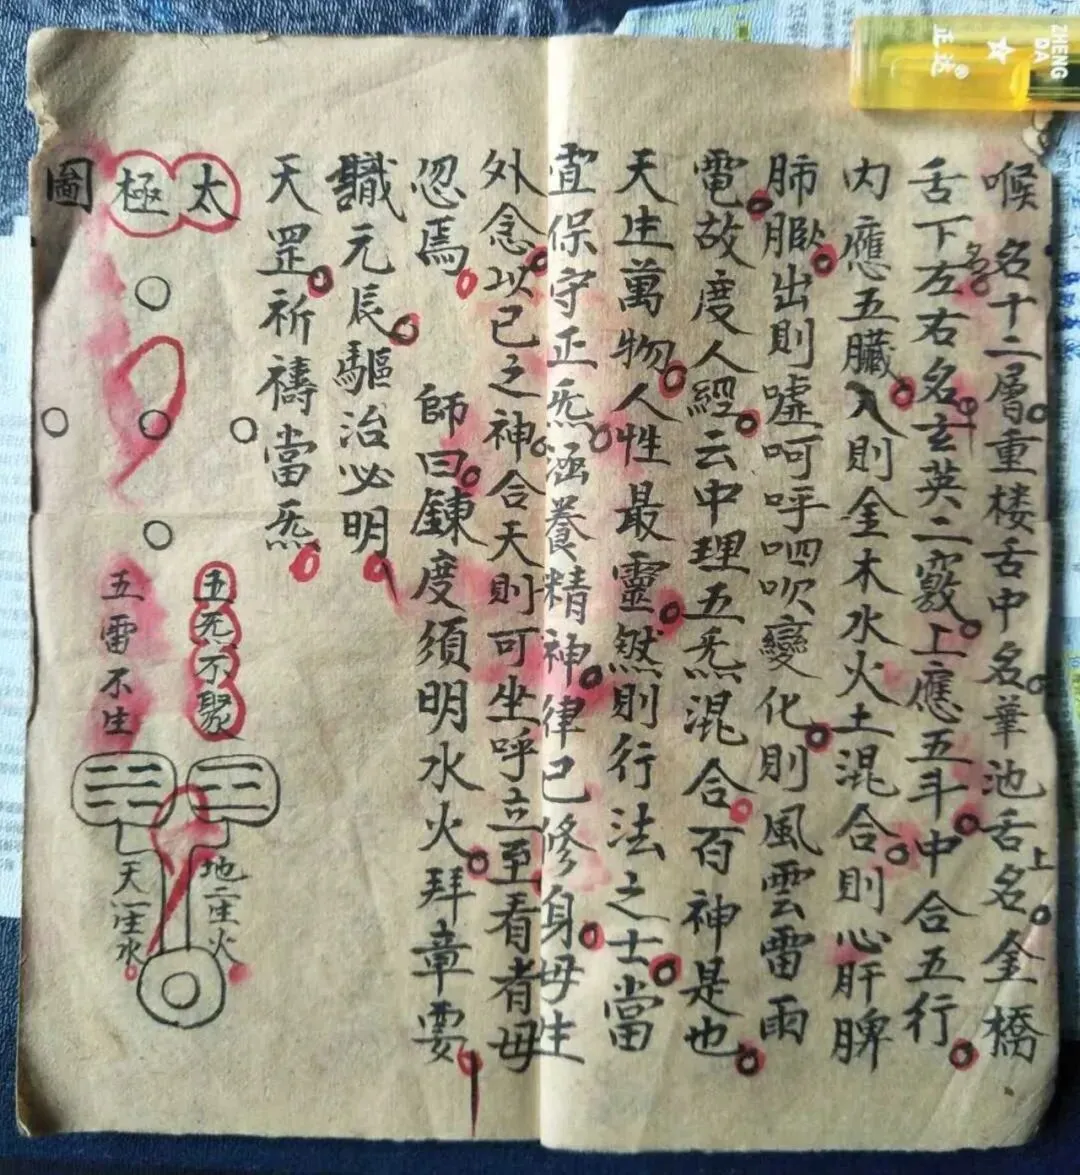 喉名十二層重楼舌中名華池舌上名金橋
舌下左右名玄英二竅上應五斗中合五行
名
内應五臟入則金木水火土混合則心肝脾
肺腑出則噓呵呼呬吹變化則風雲雷雨
電故度人經云中理五炁混合百神是也
天生萬物人性最靈然則行法之士當
宜保守正炁涵養精神律己修身毋生
外念以己之神合天則可坐呼立至看者毋
忽焉 師曰鍊度須明水火拜章要
識元辰驅治必明
天罡祈禱當炁
太極圖
五炁不聚
五雷不生
地二生火
天一生水
ZHENG DA
正达®